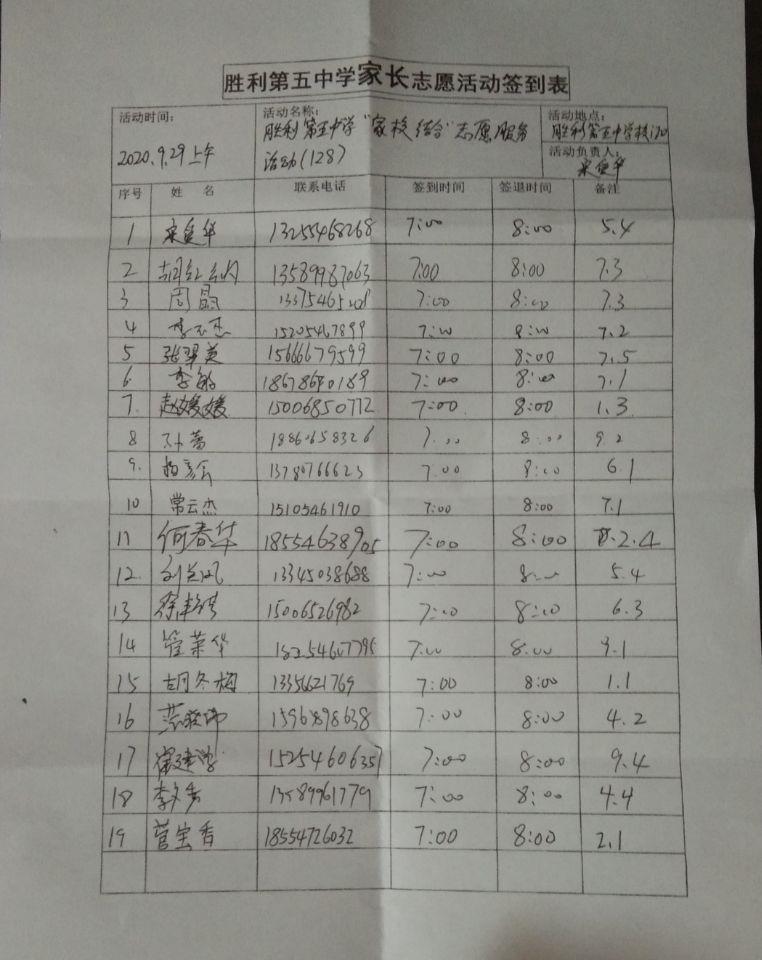 胜利第五中学家长志愿活动签到表
活动时间： 活动名称： 活动地点：
胜利第五中学“家校结合”志愿服务 胜利第五中学校门口
2020.9.29上午 活动(128) 活动负责人：
序号 姓 名 联系电话 签到时间 签退时间 备注
1 13255468268 7:00 8:00 5.4
2 13589987063 7:00 8:00 7.3
3 周晶 7:00 8:00 7.3
4 15205467899 7:00 8:00 7.2
5 张翠英 15666679599 7:00 8:00 7.5
6. 李敏 7:00 8:00 7.1
7. 赵媛媛 15006850772 7:00 8:00 1.3
8 孙蕾 18860658326 7:00 8:00 9.2
9. 13780766623 7:00 8:00 6.1
10 常云杰 15105461910 7:00 8:00 7.1
11 何春华 18554638905 7:00 8:00 2.4
12. 刘兰凤 13345038688 7:00 8:00 5.4
13 15006526982 7:00 8:00 6.3
14 管菜华 7:00 8:00 9.1
15 胡冬梅 1335621769 7:00 8:00 1.1
16 1596898638 7:00 8:00 4.2
17 崔建学 15254606357 7:00 8:00 9.4
18 李冬香 13589961779 7:00 8:00 4.4
19 菅宝香 18554726032 7:00 8:00 2.1